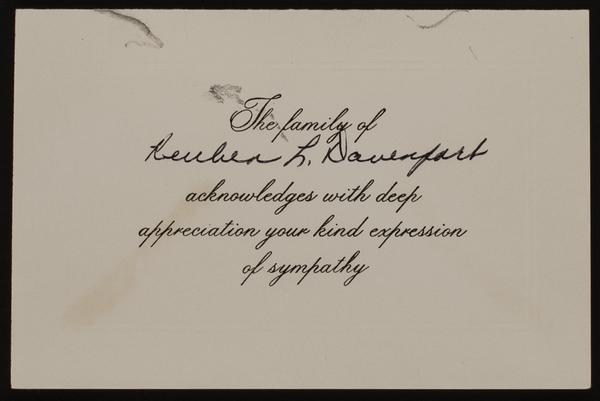 The family of
Reuben L. Davenport
acknowledges with deep
appreciation your kind expression
of sympathy